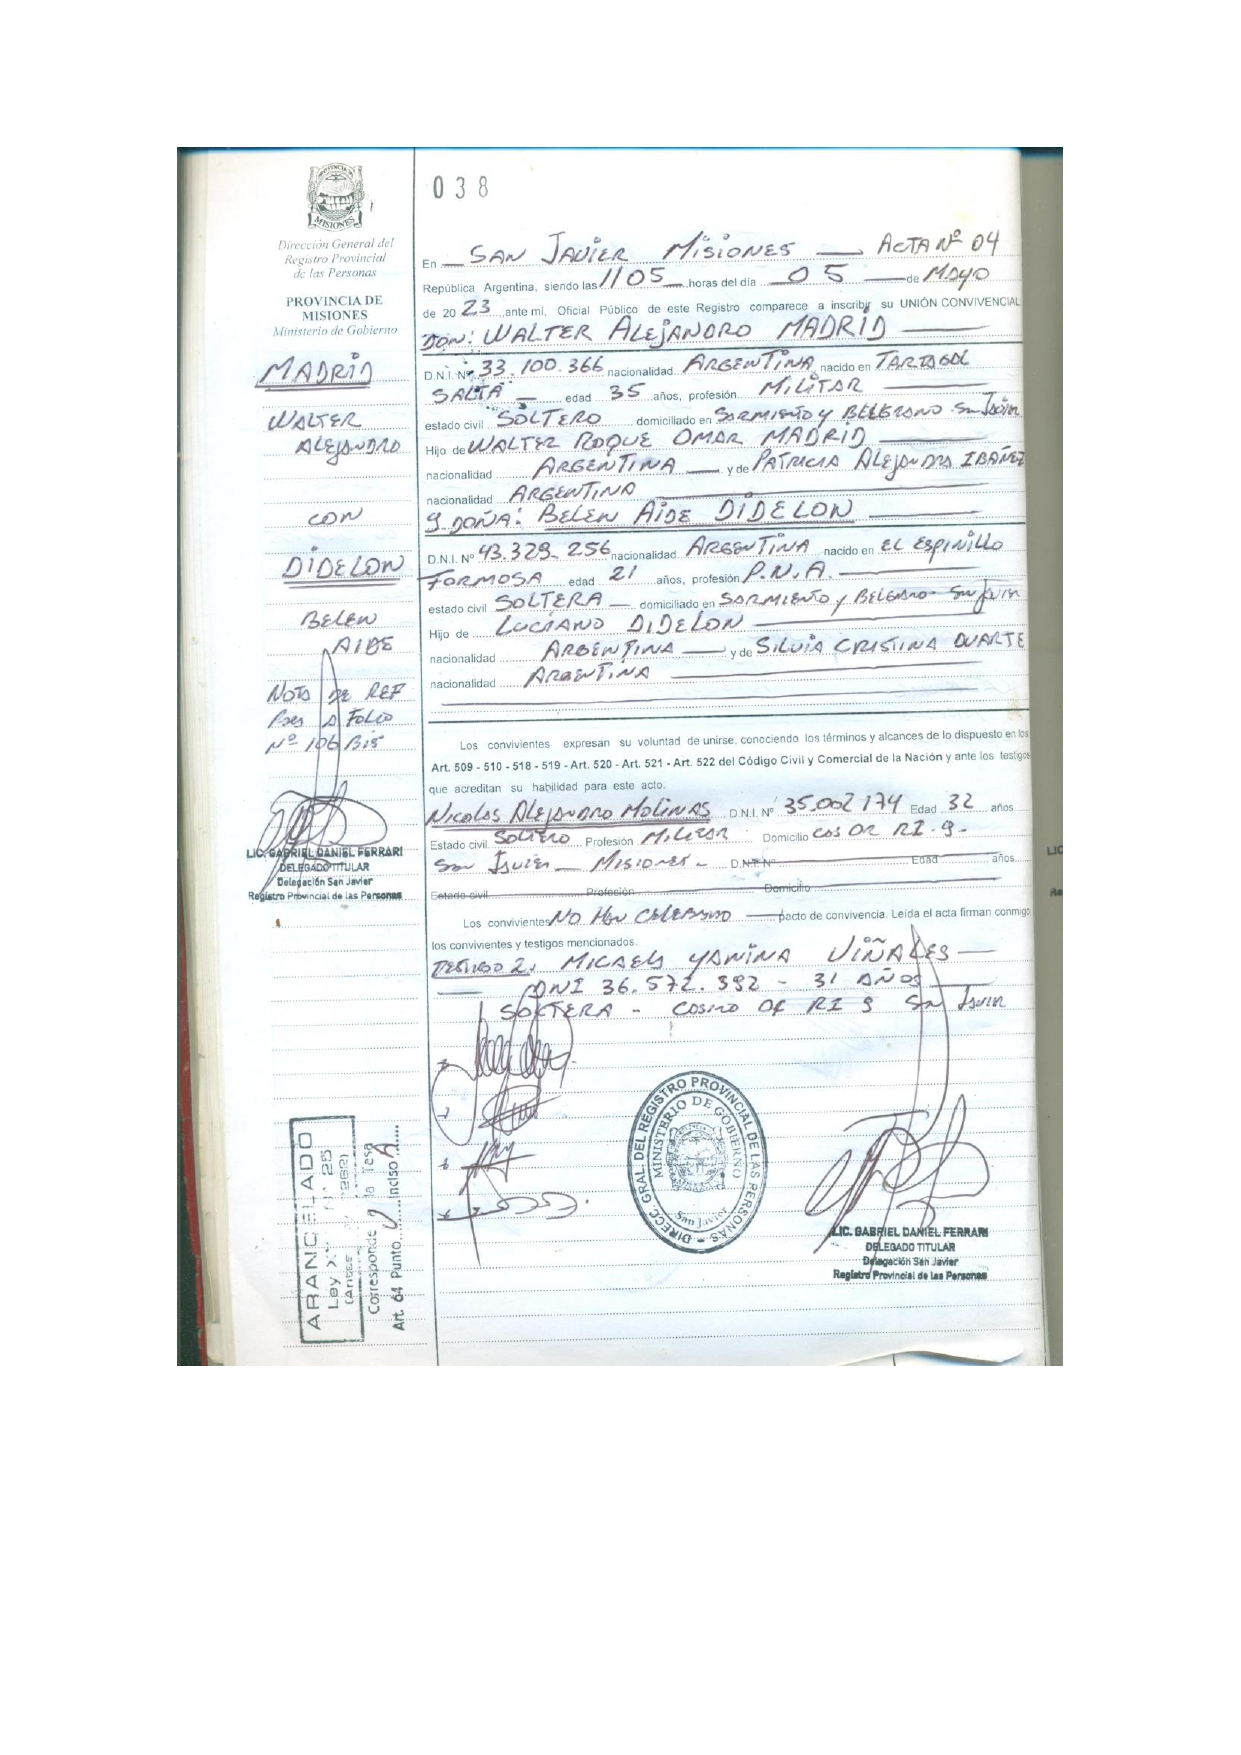 PROVINCIA DE
MISIONES
Dirección General del
Registro Provincial
de las Personas
PROVINCIA DE
MISIONES
Ministerio de Gobierno
MADRID
WALTER
ALEJANDRO
CON
DIDELON
BELEN
AIDE
NOTA DE REF
Pas A FOLIO
Nº 106 Bis
LIC. GABRIEL DANIEL FERRARI
DELEGADO TITULAR
Delegación San Javier
Registro Provincial de las Personas
ARANCELADO
Ley XV Nº 25
(Antes 2862)
Corresponde la Tasa
Art. 64 Punto Inciso A
038
En SAN JAVIER MISIONES ACTA Nº 04
República Argentina, siendo las 1105 horas del día 05 de MAYO
de 2023 ante mí, Oficial Público de este Registro comparece a inscribir su UNIÓN CONVIVENCIAL
DON: WALTER ALEJANDRO MADRID
D.N.I. Nº 33.100.366 nacionalidad ARGENTINA nacido en TARTAGAL
SALTA edad 35 años, profesión MILITAR
estado civil SOLTERO domiciliado en SARMIENTO y BELGRANO San Javier
Hijo de WALTER ROQUE OMAR MADRID
nacionalidad ARGENTINA y de PATRICIA ALEJANDRA IBAÑEZ
nacionalidad ARGENTINA
y DOÑA: BELEN AIDE DIDELON
D.N.I. Nº 43.329.256 nacionalidad ARGENTINA nacido en EL ESPINILLO
FORMOSA edad 21 años, profesión P.N.A.
estado civil SOLTERA domiciliado en SARMIENTO y BELGRANO San Javier
Hijo de LUCIANO DIDELON
nacionalidad ARGENTINA y de SILVIA CRISTINA DUARTE
nacionalidad ARGENTINA
Los convivientes expresan su voluntad de unirse, conociendo los términos y alcances de lo dispuesto en los
Art. 509 - 510 - 518 - 519 - Art. 520 - Art. 521 - Art. 522 del Código Civil y Comercial de la Nación y ante los testigos
que acreditan su habilidad para este acto.
NICOLAS ALEJANDRO MOLINAS D.N.I. Nº 35.002.174 Edad 32 años
Estado civil SOLTERO Profesión MILITAR Domicilio COS OF RI-9-
San Javier - MISIONES - D.N.I. Nº Edad años
Estado civil Profesión Domicilio
Los convivientes NO Han CELEBRADO pacto de convivencia. Leída el acta firman conmigo
los convivientes y testigos mencionados.
TESTIGO 2: MICAELA YANINA VIÑALES
DNI 36.572.392 - 31 AÑOS
SOLTERA - COSMO OF RI 9 San Javier
DIRECC. GRAL. DEL REGISTRO PROVINCIAL DE LAS PERSONAS
MINISTERIO DE GOBIERNO
San Javier
LIC. GABRIEL DANIEL FERRARI
DELEGADO TITULAR
Delegación San Javier
Registro Provincial de las Personas